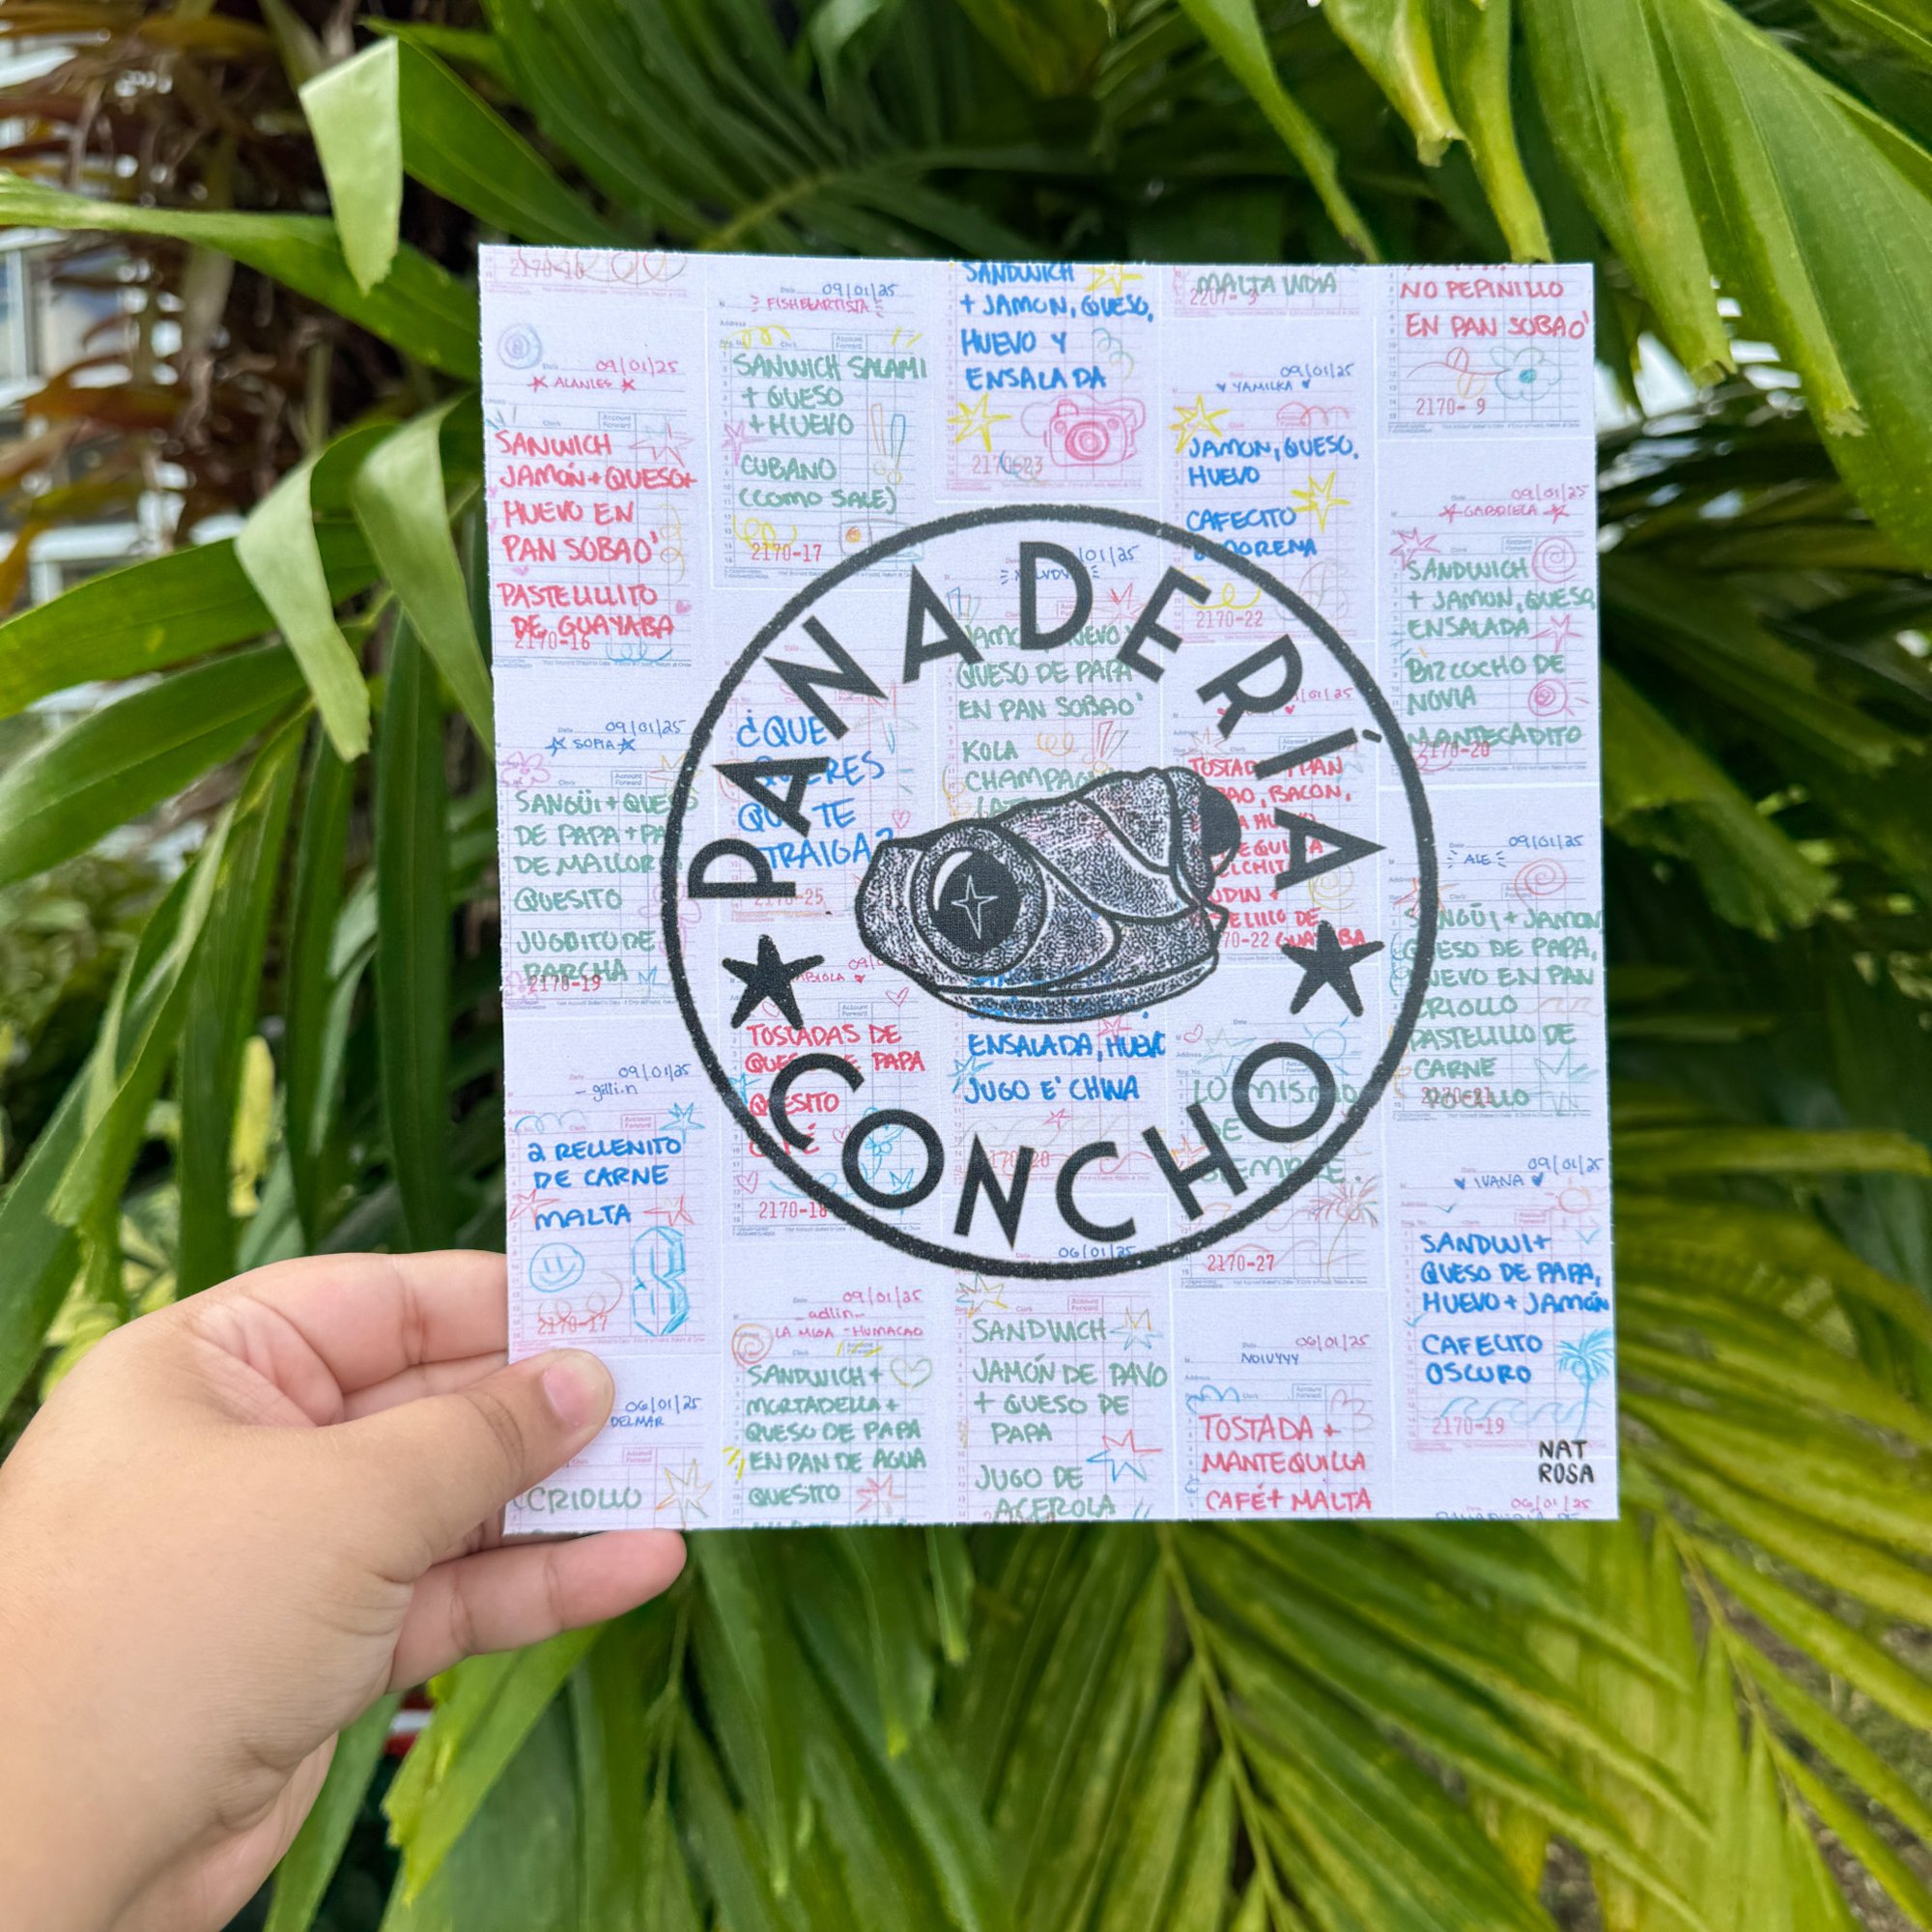 PANADERÍA
CONCHO
2170-16
09/01/25
ALANIES
Account
Forward
SANWICH
JAMÓN+QUESO+
HUEVO EN
PAN SOBAO'
PASTELILLITO
DE GUAYABA
2170-16
Date
09/01/25
SOFIA
Clerk
Account
Forward
SANGÜI + QUESO
DE PAPA + PA
DE MALLOR
QUESITO
JUGUITO DE
PARCHA
2170-19
Date
09/01/25
2 RELLENITO
DE CARNE
MALTA
2170-17
06/01/25
DELMAR
CRIOLLO
Date
09/01/25
Address
Clerk
Account
Forward
SANWICH SALAMI
+ QUESO
+ HUEVO
CUBANO
(COMO SALE)
2170-17
¿QUE
QUIERES
QUE TE
TRAIGA?
2170-25
Account
Forward
TOSTADAS DE
QUESO DE PAPA
QUESITO
CAFÉ
2170-18
Date
09/01/25
adlin
LA MIGA - HUMACAO
SANDWICH +
MORTADELLA +
QUESO DE PAPA
EN PAN DE AGUA
QUESITO
SANDWICH
+ JAMON, QUESO,
HUEVO Y
ENSALADA
2170-23
/01/25
HUEVO
QUESO DE PAPA
EN PAN SOBAO'
KOLA
CHAMPAG
ENSALADA, HUEVO
JUGO E' CHINA
06/01/25
SANDWICH
JAMÓN DE PAVO
+ QUESO DE
PAPA
JUGO DE
ACEROLA
MALTA INDIA
2207-3
Date
09/01/25
YAMILKA
JAMON, QUESO,
HUEVO
CAFECITO
2170-22
/01/25
BACON,
PASTELILLO DE
GUAYABA
LO MISMO
DE
SIEMPRE.
2170-27
06/01/25
NOIVYYY
Address
TOSTADA +
MANTEQUILLA
CAFÉ + MALTA
NO PEPINILLO
EN PAN SOBAO'
2170-9
Date
09/01/25
GABRIELA
SANDWICH
+ JAMON, QUESO,
ENSALADA
BIZCOCHO DE
NOVIA
MANTECADITO
2170-20
Date
09/01/25
ALE
SANGÜI + JAMON
QUESO DE PAPA,
HUEVO EN PAN
CRIOLLO
PASTELILLO DE
CARNE
POCILLO
2170-21
Date
09/01/25
IVANA
SANDWI+
QUESO DE PAPA,
HUEVO + JAMÓN
CAFECITO
OSCURO
2170-19
NAT
ROSA
06/01/25